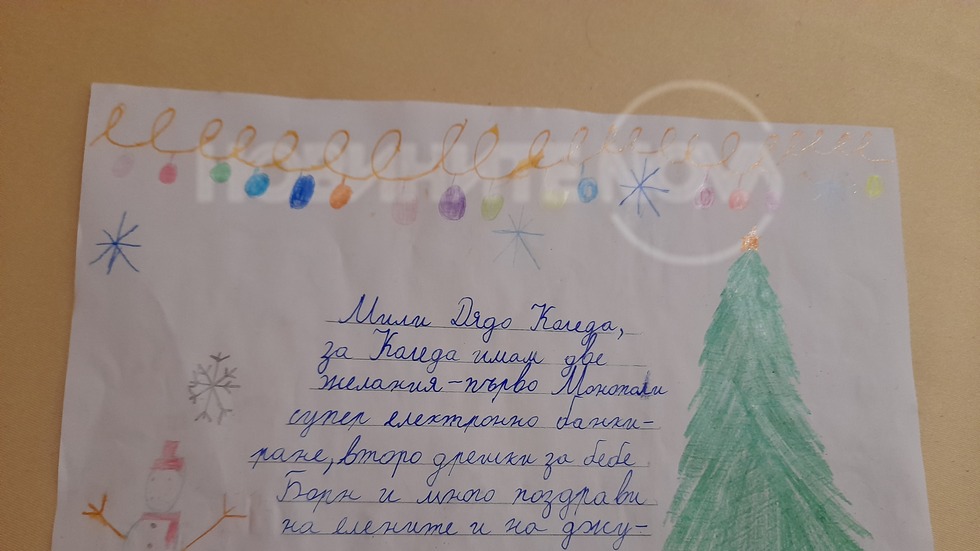 НОВИНИТЕ NOVA
Мили Дядо Коледа,
за Коледа имам две
желания-първо Монопали
супер електронно банки-
ране, второ дрешки за бебе
Борн и много поздрави
на елените и на джу-